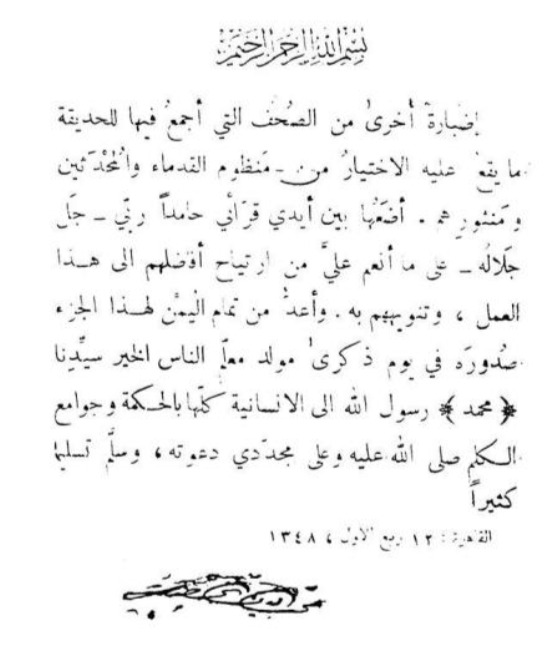 بسم الله الرحمن الرحيم
إضبارة أخرى من الصُحُف التي أجمعُ فيها للحديقة
ما يقعُ عليه الاختيارُ من مَنظوم القدماء والمُحْدَثين
ومَنثورِهم . أضَعُها بين أيدي قرّائي حامداً ربّي ـ جَل
جَلالُه ـ على ما أنعم عليَّ من ارتياح أفضلهم الى هـذا
العمل ، وتنويههم به . وأعدُّ من تمام اليُمْن لهـذا الجزء
صُدورَه في يوم ذكرى مولد معلّم الناس الخير سيِّدنا
﴿ محمد ﴾ رسول الله الى الانسانية كلّها بالحـكمة وجوامع
الـكلم صلى الله عليه وعلى مجدّدي دعوته ، وسلَّم تسليما
كثيراً
القاهرة : ١٢ ربيع الاول ، ١٣٤٨